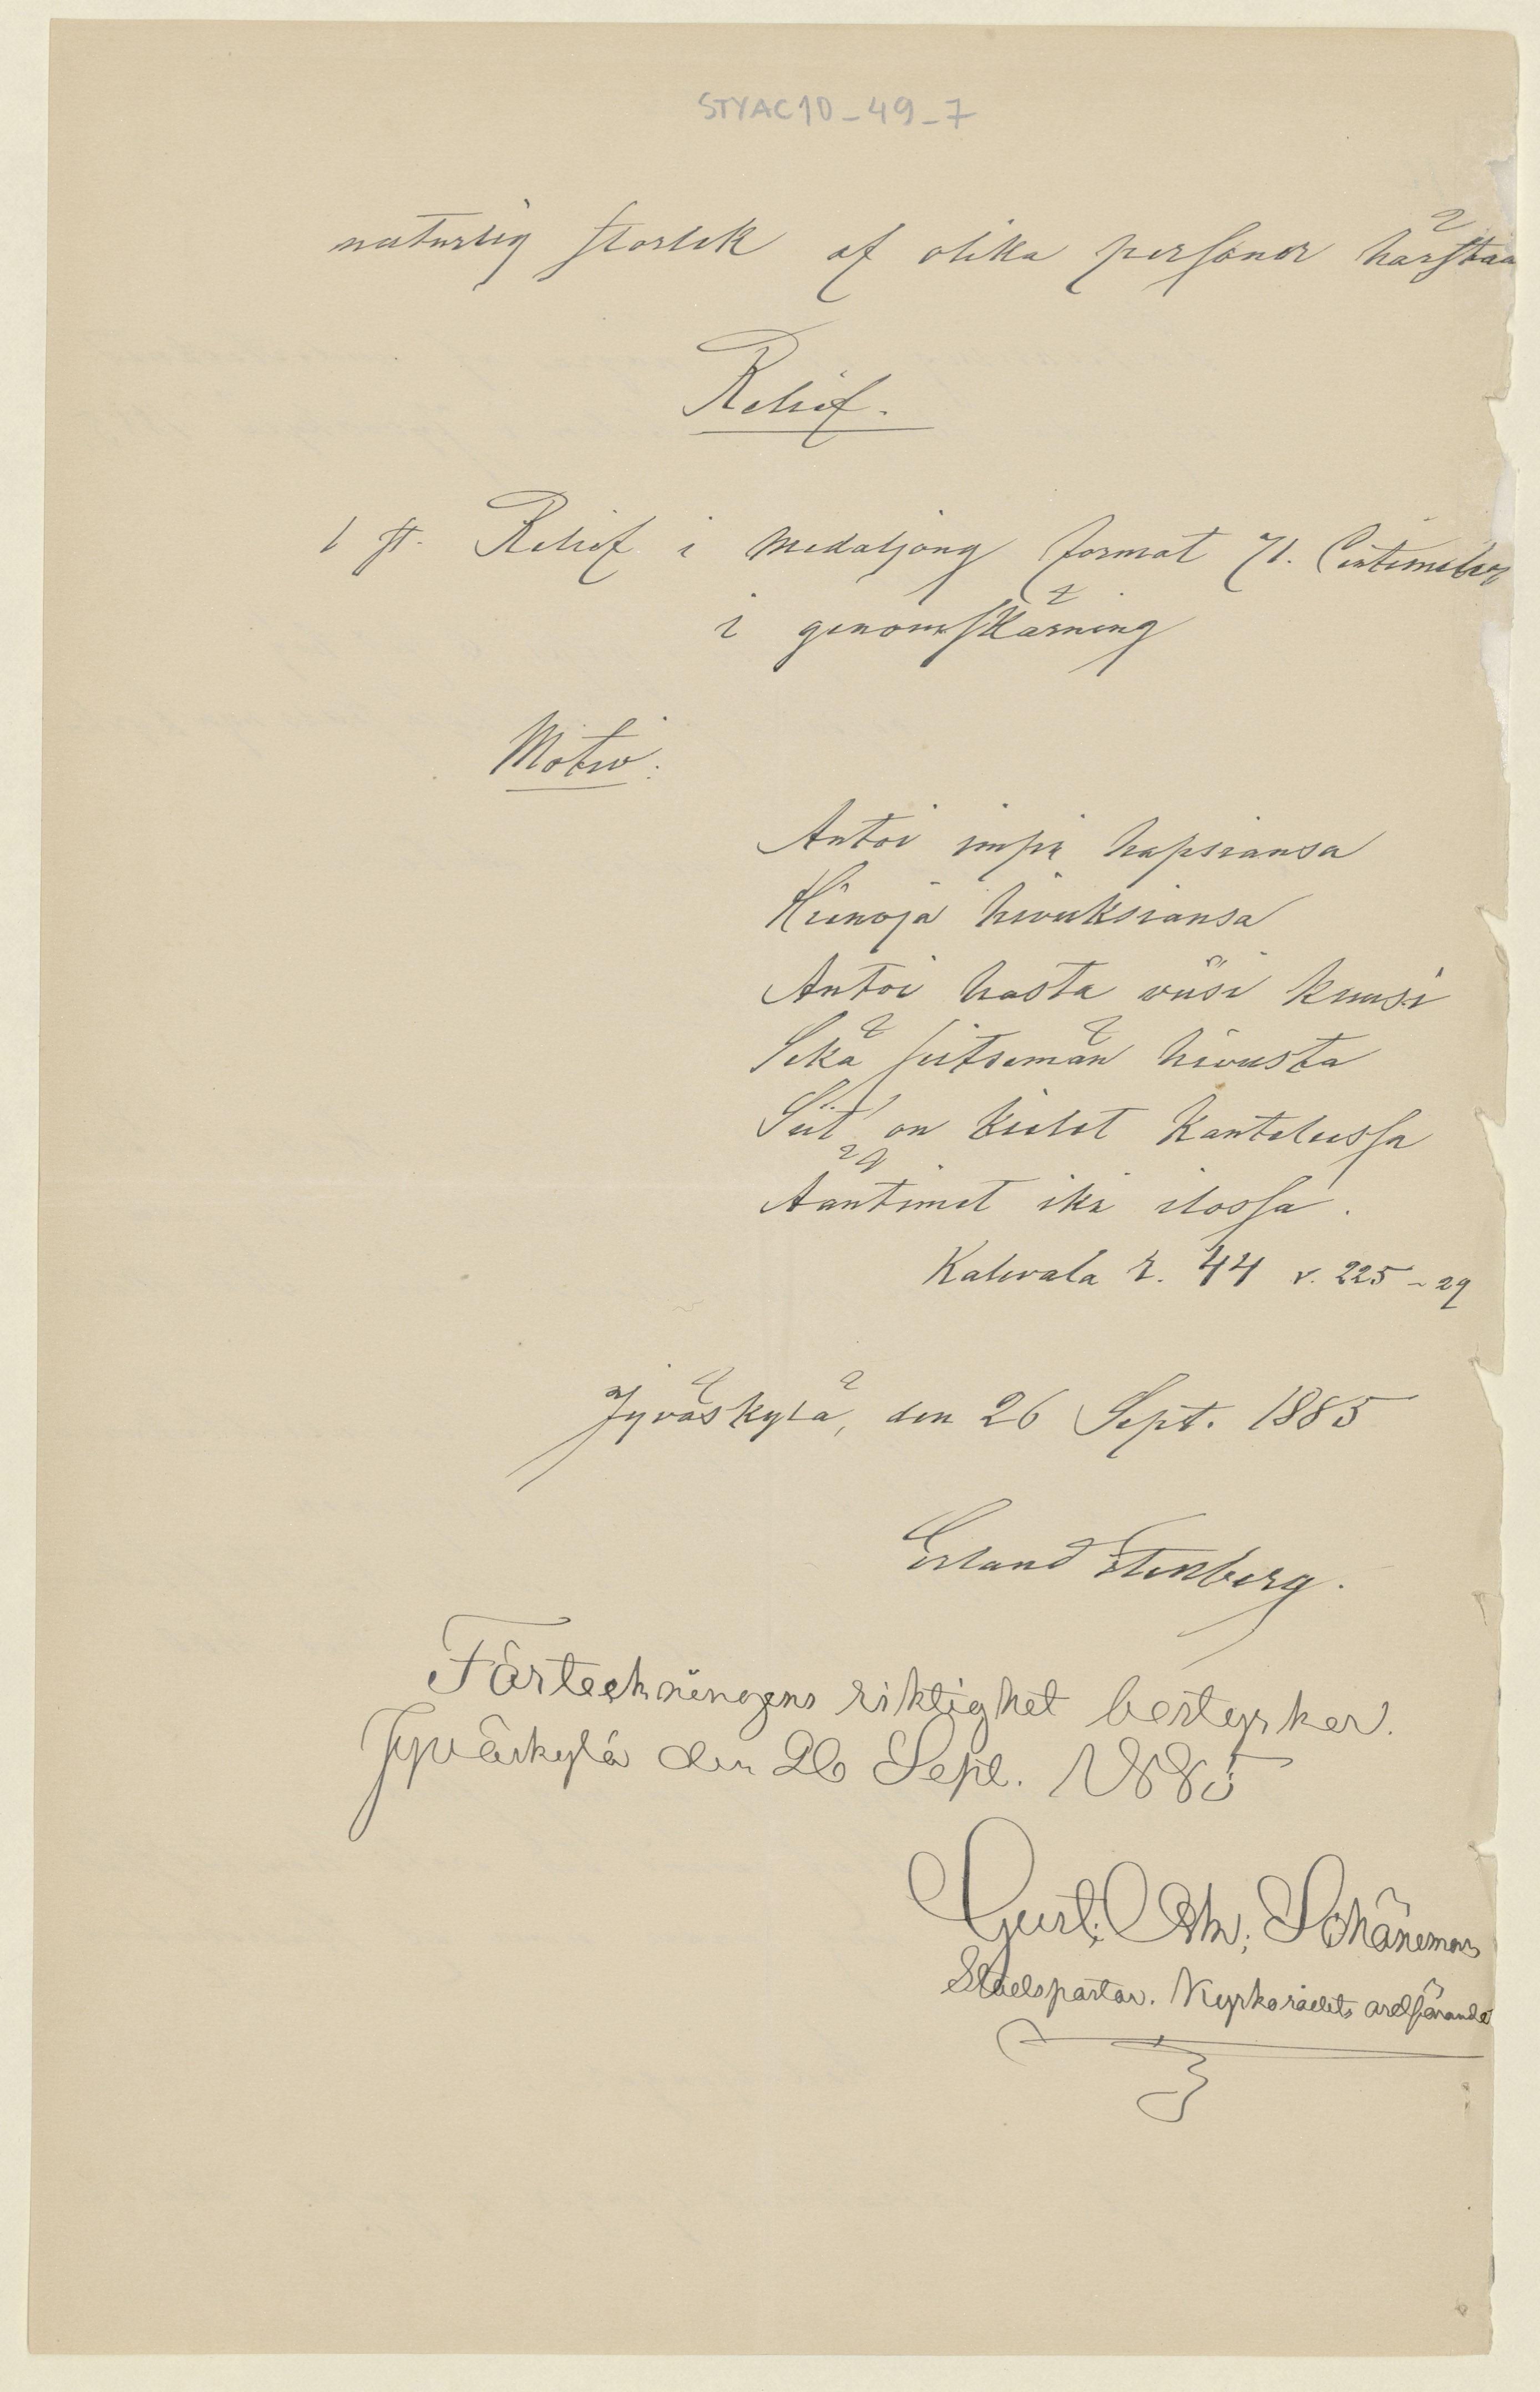 STYAC10-49-7
naturlig storlek af olika personer härstaa
Relief.
1 st. Relief i Medaljong format 71. Centimeter
i genomskärning
Motiv:
Antoi impi hapsiansa
Hienoja hivuksiansa
Antoi hasta viisi kuusi
Sekä seitsemän hivusta
Siit' on kielet kantelessa
Ääntimet iki ilossa.
Kalevala r. 44 v. 225-29
Jyväskylä, den 26 Sept. 1885
Erland Stenberg.
Förteckningens riktighet bestyrker.
Jyväskylä den 26 Sept. 1885
Gust. Ad. Schöneman
Stadspastor. Kyrkorådets ordförande